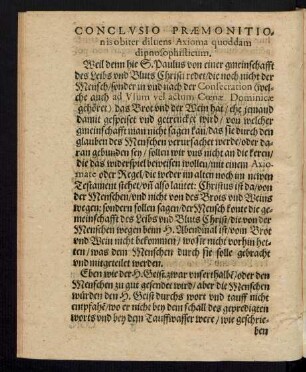 CONCLVSIO PRÆMONITIO-
nis obiter diluens Axioma quoddam
dipnosophisticum.
Weil denn hie S. Paulus von einer gmeinschafft
des Leibs und Bluts Christi redet / die noch nicht der
Mensch / sonder in und nach der Consecration (wel-
che auch ad Vsum vel actum Cœnæ Dominicæ
gehöret) das Brot und der Wein hat / ehe jemand
damit gespeiset und getrencket wird / von welcher
gmeinschafft man nicht sagen kan / das sie durch den
glauben des Menschen verursacher werde / oder da-
ran gebunden sey / sollen wir uns nicht an die keren /
die das widerspiel beweisen wollen / mit einem Axio-
mate oder Regel / die weder im alten noch im newen
Testament stehet / uñ also lautet: Christus ist da / von
der Menschen / und nicht von des Brots und Weins
wegen: sondern sollen sagen / der Mensch konte die ge-
meinschafft des Leibs und Bluts Christi / die von der
Menschen wegen beim H. Abendmal ist / vom Brot
und Wein nicht bekommen / wo sie nicht vorhin het-
ten / was dem Menschen durch sie solle gebracht
und mitgeteilet werden.
Eben wie der H. Geist zwar unserthalbẽ / oder den
Menschen zu gut gesendet wird / aber die Menschen
würden den H. Geist durchs wort und tauff nicht
empfahẽ / wo er nicht bey dem schall des gepredigten
worts und bey dem Tauffwasser were / wie geschrie-
ben